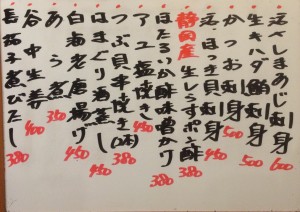 活〆しまあじ刺身 600
生キハダ鮪刺身 500
かつお刺身 500
活ほっき貝刺身 450
静岡産 生しらすポン酢 380
ほたるいか酢味噌かけ 380
アユ塩焼き 450
つぶ貝串焼き(2本) 380
はまぐり酒蒸し 450
白海老唐揚げ 450
あら煮 350
谷中生姜 400
長茄子煮びたし 380